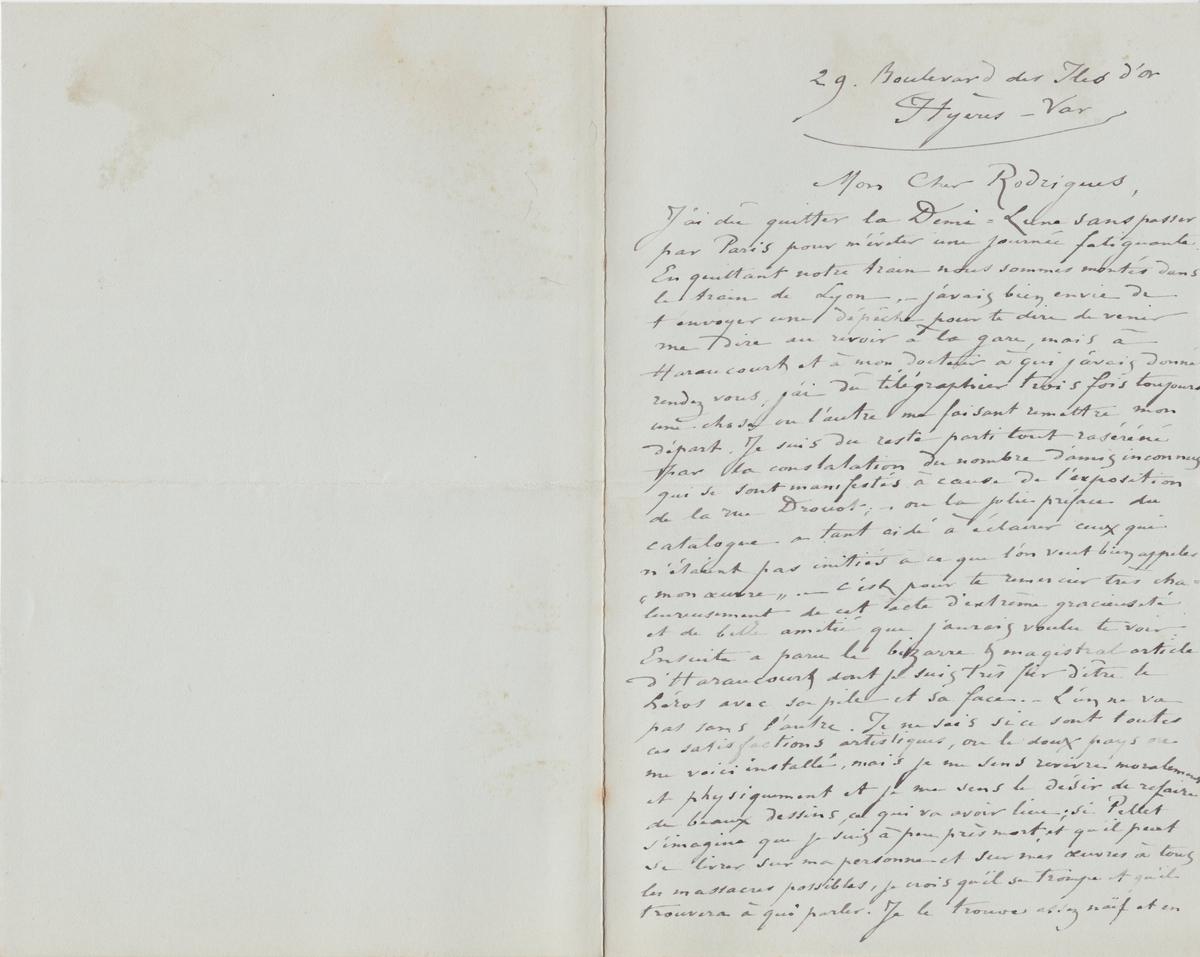 29. Boulevard des Iles d'or
Hyères - Var
Mon Cher Rodrigues,
J'ai dû quitter la Demi-Lune sans passer
par Paris pour m'éviter une journée fatiguante.
En quittant notre train nous sommes montés dans
le train de Lyon, - j'avais bien envie de
t'envoyer une dépêche pour te dire de venir
me dire au revoir à la gare, mais à
Haraucourt et à mon docteur à qui j'avais donné
rendez vous, j'ai dû télégraphier trois fois toujours
une chose ou l'autre me faisant remettre mon
départ. Je suis du reste parti tout raséréné
par la constatation du nombre d'amis inconnus
qui se sont manifestés à cause de l'exposition
de la rue Drouot; - ou la jolie préface du
catalogue a tant aidé à éclairer ceux qui
n'étaient pas initiés à ce que l'on veut bien appeler
"mon œuvre" - c'est pour te remercier très cha-
leureusement de cet acte d'extrême gracieuseté
et de belle amitié que j'aurais voulu te voir.
Ensuite a paru le bizarre & magistral article
d'Haraucourt dont je suis très fier d'être le
héros avec sa pile et sa face. - L'un ne va
pas sans l'autre. Je ne sais si ce sont toutes
ces satisfactions artistiques, ou le doux pays ou
me voici installé, mais je me sens revivre moralement
et physiquement et je me sens le désir de refaire
de beaux dessins, ce qui va avoir lieu; si Pellet
s'imagine que je suis à peu près mort et qu'il peut
se livrer sur ma personne et sur mes œuvres à tous
les massacres possibles, je crois qu'il se trompe et qu'il
trouvera à qui parler. Je le trouve assez naïf et en